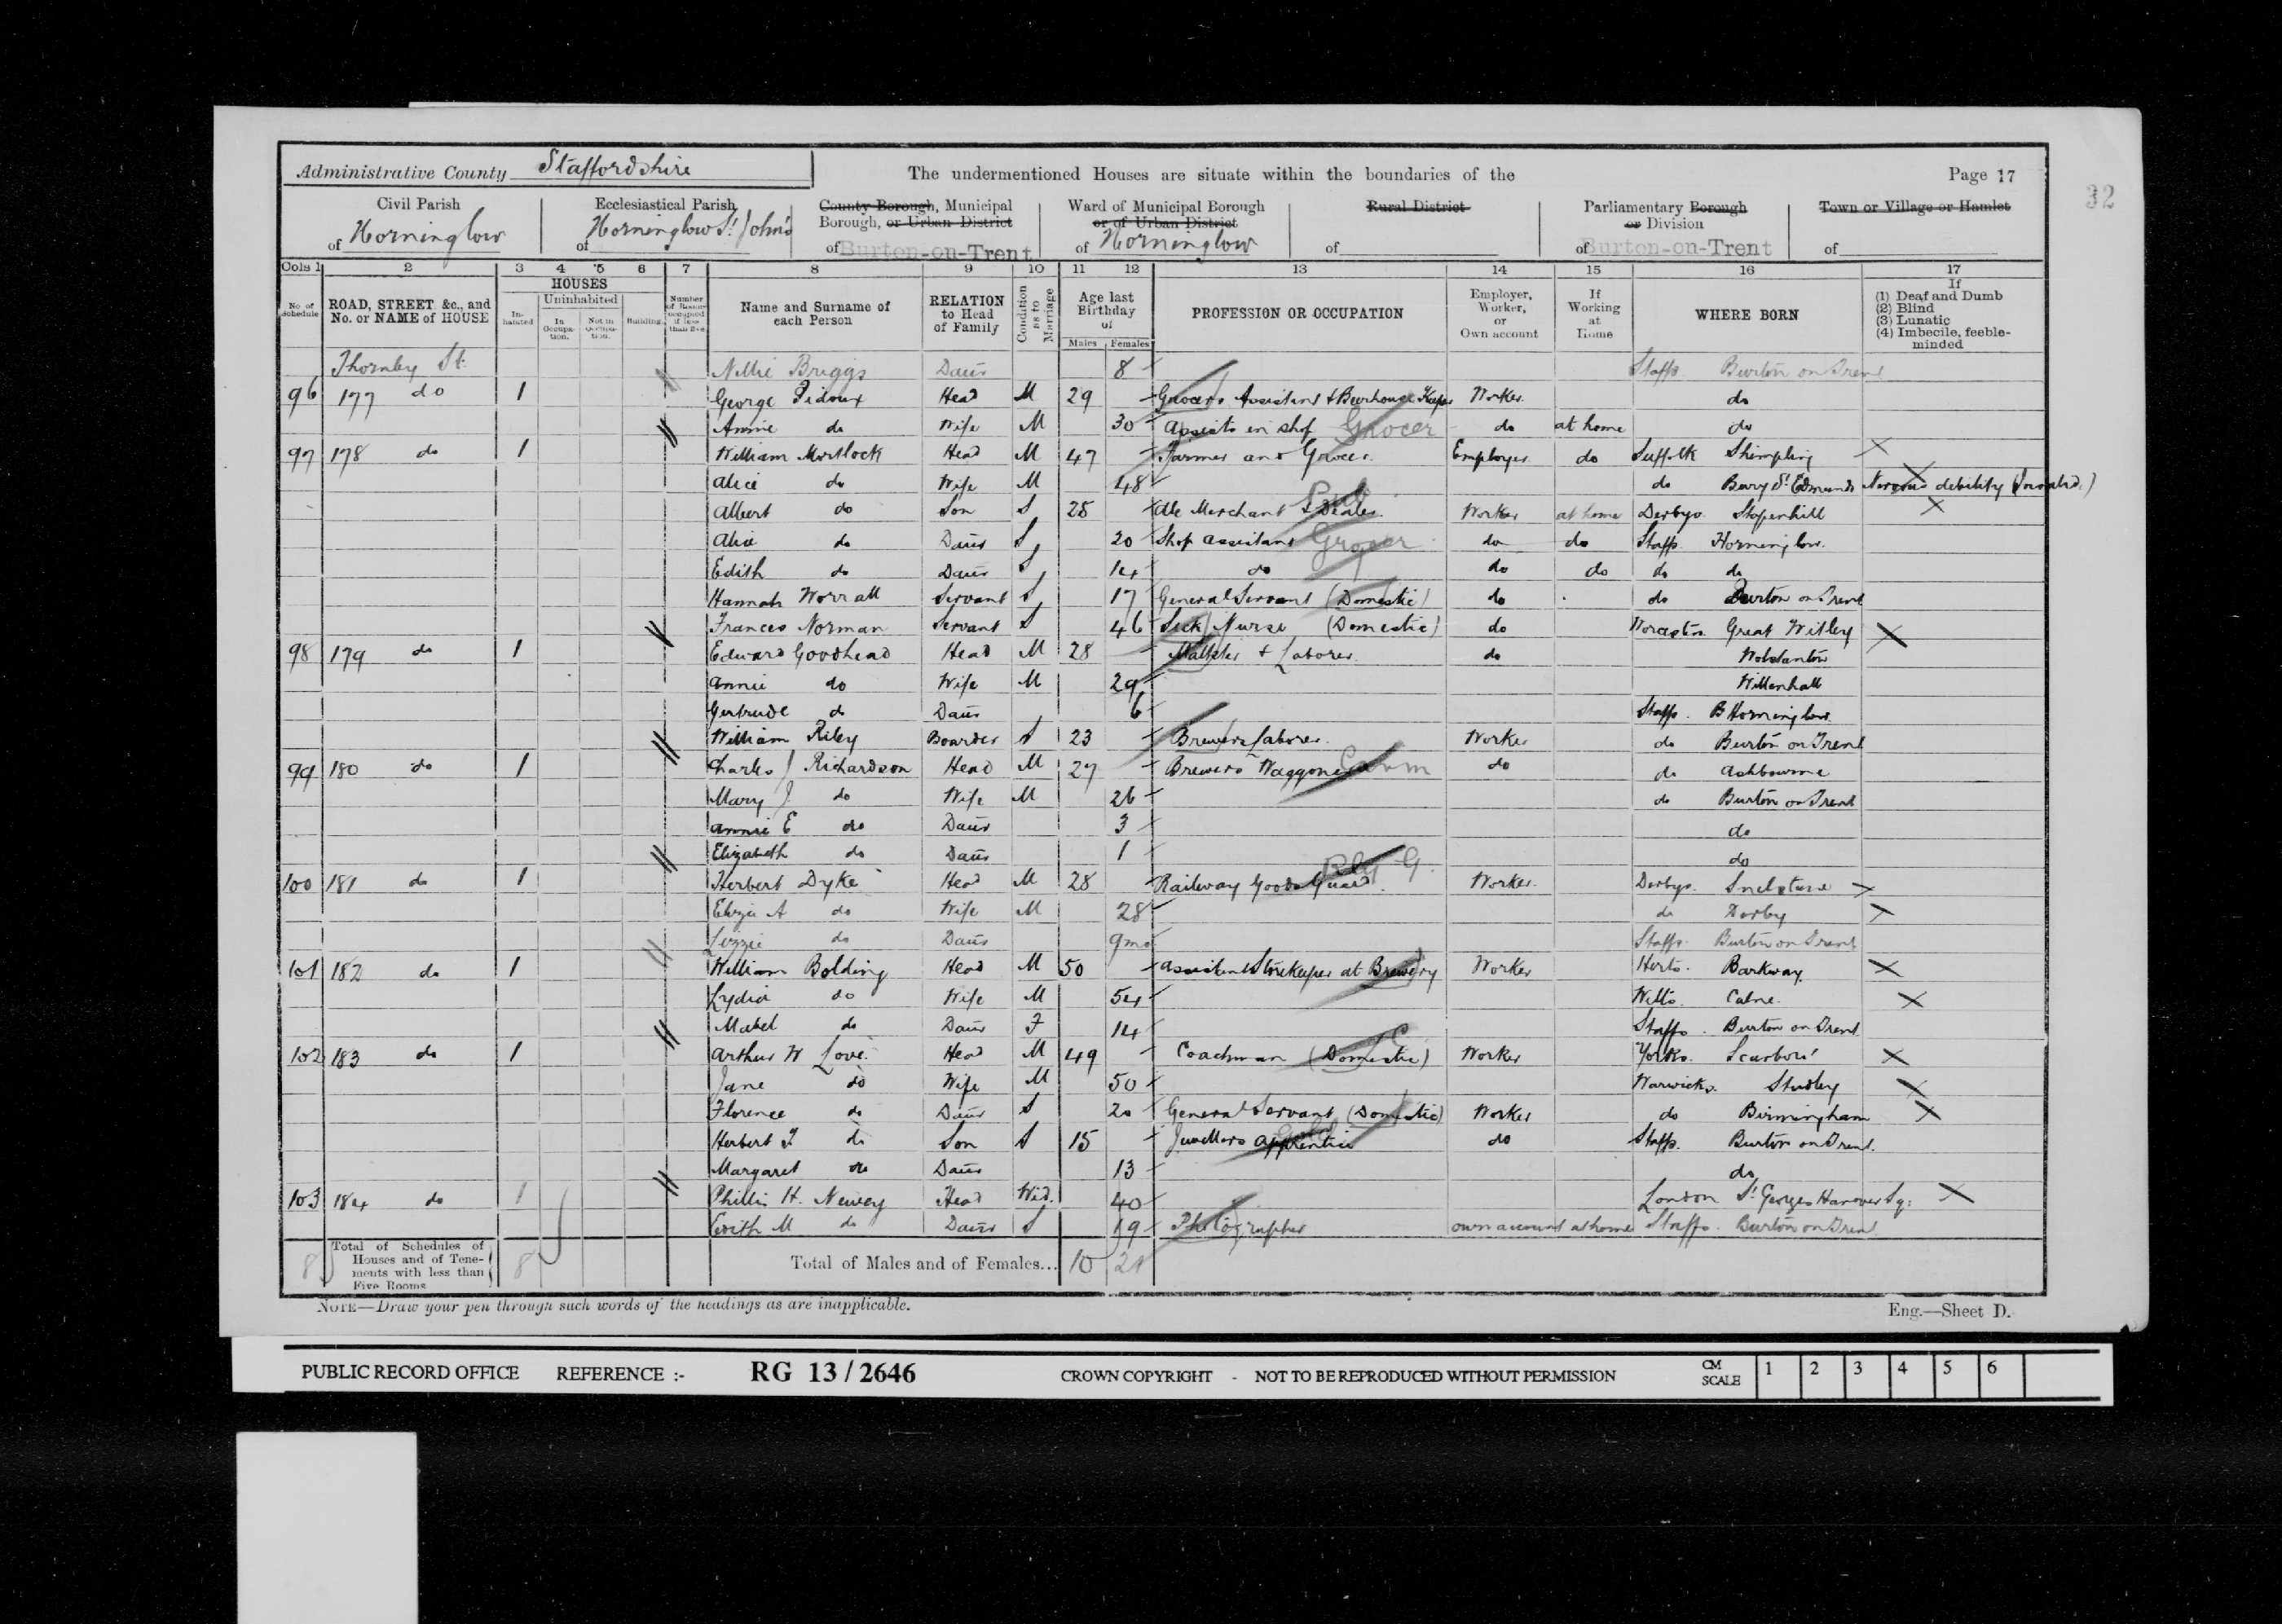 Administrative County Staffordshire The undermentioned Houses are situate within the boundaries of the Page 17
32
Civil Parish Ecclesiastical Parish County Borough, Municipal Borough, or Urban District Ward of Municipal Borough or of Urban District Rural District Parliamentary Borough or Division Town or Village or Hamlet
of Horninglow of Horninglow St. John's of Burton-on-Trent of Horninglow of of Burton-on-Trent of
Cols 1 2 3 4 5 6 7 8 9 10 11 12 13 14 15 16 17
No. of Schedule ROAD, STREET &c., and No. or NAME of HOUSE HOUSES Inhabited Uninhabited In Occupation. Not in Occupation. Building. Number of Rooms occupied if less than five Name and Surname of each Person RELATION to Head of Family Condition as to Marriage Age last Birthday of Males Females PROFESSION OR OCCUPATION Employer, Worker, or Own account If Working at Home WHERE BORN If (1) Deaf and Dumb (2) Blind (3) Lunatic (4) Imbecile, feeble-minded
Thornley St. Nellie Briggs Daur 8 Staffs Burton on Trent
96 177 do 1 George Pidoux Head M 29 Grocers Assistant & Beerhouse Keeper Worker do
Annie do Wife M 30 Assists in shop Grocer do at home do
97 178 do 1 William Mortlock Head M 47 Farmer and Grocer Employer do Suffolk Shimpling
Alice do Wife M 48 do Bury St. Edmunds Nervous debility (Invalid.)
Albert do Son S 25 Ale Merchant & Dealer Worker at home Derbys Stapenhill
Alice do Daur S 20 Shop Assistant Grocer do do Staffs Horninglow
Edith do Daur S 14 do do do do do
Hannah Worrall Servant S 17 General Servant (Domestic) do do Burton on Trent
Frances Norman Servant S 46 Sick Nurse (Domestic) do Worcester Great Witley
98 179 do 1 Edward Goodhead Head M 28 Maltster & Laborer do Wolstanton
Annie do Wife M 29 Willenhall
Gertrude do Daur 6 Staffs. B Horninglow
William Riley Boarder S 23 Brewers Laborer Worker do Burton on Trent
99 180 do 1 Charles J Richardson Head M 27 Brewers Waggoner do do Ashbourne
Mary J. do Wife M 26 do Burton on Trent
Annie E do Daur 3 do
Elizabeth do Daur 1 do
100 181 do 1 Herbert Dyke Head M 28 Railway Goods Guard Rly G. Worker Derbys.
Eliza A do Wife M 28 do Derby
Lizzie do Daur 9mo Staffs Burton on Trent
101 182 do 1 William Bolding Head M 50 Assistant Storekeeper at Brewery Worker Herts. Barkway
Lydia do Wife M 54 Wilts. Calne
Mabel do Daur F 14 Staffs. Burton on Trent
102 183 do 1 Arthur W Love Head M 49 Coachman (Domestic) Worker Yorks. Scarboro'
Jane do Wife M 50 Warwicks. Studley
Florence do Daur S 20 General Servant (Domestic) Worker do Birmingham
Herbert F do Son S 15 Jewellers Apprentice do Staffs. Burton on Trent.
Margaret do Daur 13 do
103 184 do 1 Phillis H. Newey Head Wid. 40 London St. Georges Hanover Sq.
Edith M do Daur S 19 Photographer own account at home Staffs. Burton on Trent
8 Total of Schedules of Houses and of Tenements with less than Five Rooms 8 Total of Males and of Females... 10 21
NOTE—Draw your pen through such words of the headings as are inapplicable. Eng.—Sheet D.
PUBLIC RECORD OFFICE REFERENCE :- RG 13 / 2646 CROWN COPYRIGHT - NOT TO BE REPRODUCED WITHOUT PERMISSION CM SCALE 1 2 3 4 5 6